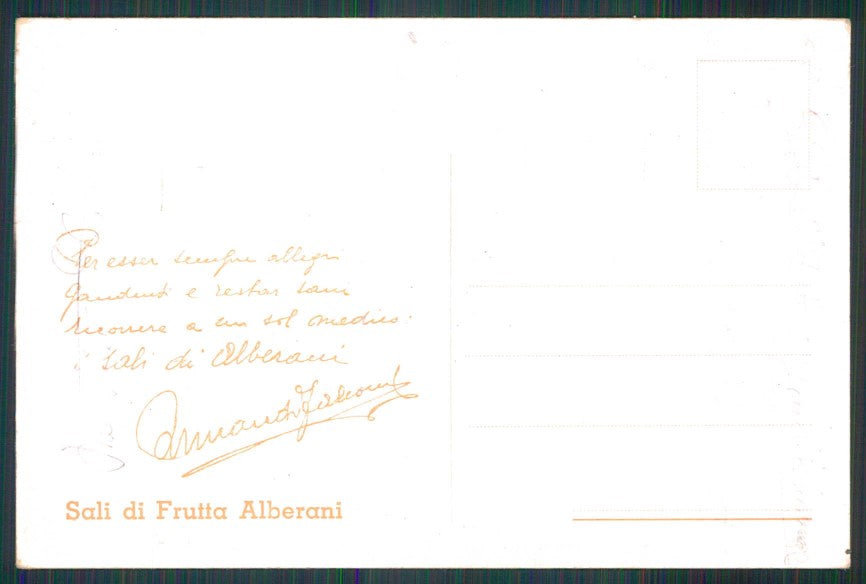 Per esser sempre allegri
gaudenti e restar sani
ricorrere a un sol medico:
i Sali di Alberani
Armando Falconi
Sali di Frutta Alberani